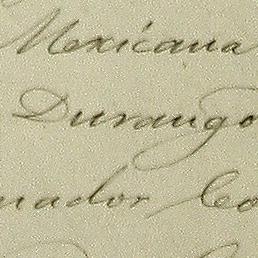 Mexicana
Durango
nador Co